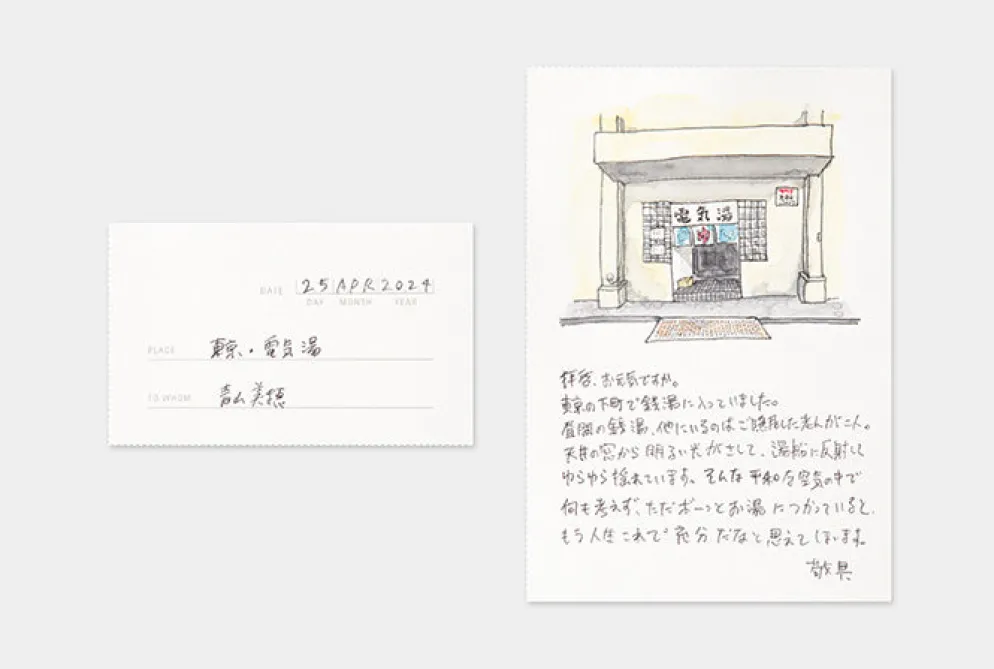 DATE 25 APR 2024
DAY MONTH YEAR
PLACE 東京・電気湯
TO WHOM 青山美穂
電気湯
ゆ
拝啓、お元気ですか。
東京の下町で銭湯に入っていました。
昼間の銭湯、他にいるのはご隠居した老人が二人。
天井の窓から明るい光がさして、湯船に反射して
ゆらゆら揺れています。そんな平和な空気の中で
何も考えず、ただボーッとお湯につかっていると、
もう人生これで充分だなと思えてしまいます。
敬具